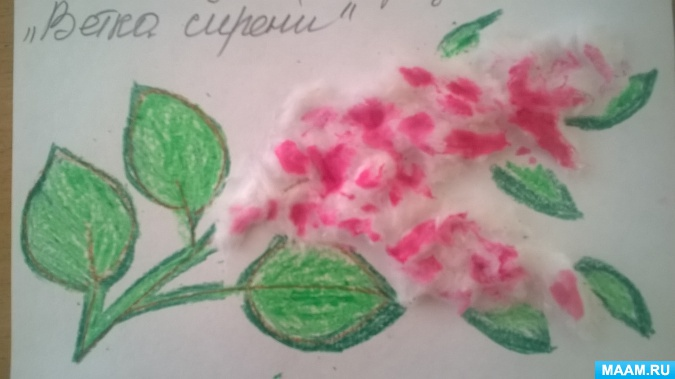 „Ветка сирени"
MAAM.RU